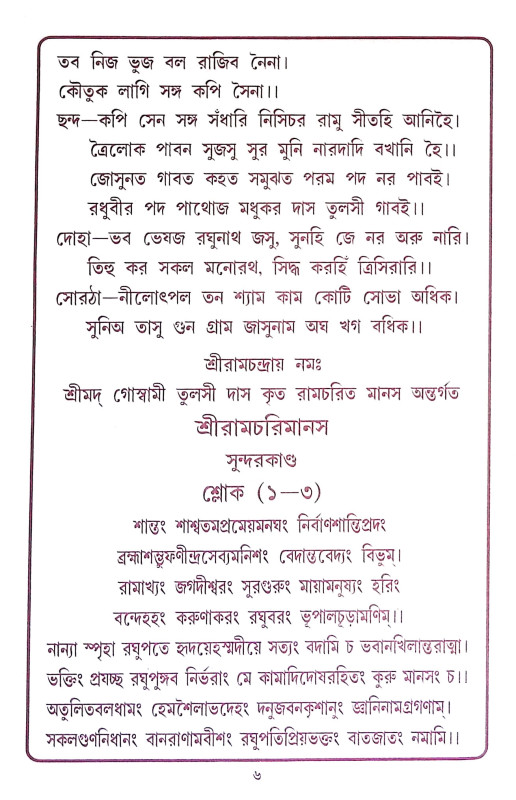 তব নিজ ভুজ বল রাজিব নৈনা।
কৌতুক লাগি সঙ্গ কপি সৈনা।।
ছন্দ—কপি সেন সঙ্গ সঁধারি নিসিচর রামু সীতহি আনিহৈ।
ত্রৈলোক পাবন সুজসু সুর মুনি নারদাদি বখানি হৈ।।
জোসুনত গাবত কহত সমুঝত পরম পদ নর পাবই।
রধুবীর পদ পাথোজ মধুকর দাস তুলসী গাবই।।
দোহা—ভব ভেষজ রঘুনাথ জসু, সুনহি জে নর অরু নারি।
তিহু কর সকল মনোরথ, সিদ্ধ করহিঁ ত্রিসিরারি।।
সোরঠা—নীলোৎপল তন শ্যাম কাম কোটি সোভা অধিক।
সুনিঅ তাসু গুন গ্রাম জাসুনাম অঘ খগ বধিক।।
শ্রীরামচন্দ্রায় নমঃ
শ্রীমদ্ গোস্বামী তুলসী দাস কৃত রামচরিত মানস অন্তর্গত
শ্রীরামচরিমানস
সুন্দরকাণ্ড
শ্লোক (১—৩)
শান্তং শাশ্বতমপ্রমেয়মনঘং নির্বাণশান্তিপ্রদং
ব্রহ্মাশম্ভুফণীন্দ্রসেব্যমনিশং বেদান্তবেদ্যং বিভুম্।
রামাখ্যং জগদীশ্বরং সুরগুরুং মায়ামনুষ্যং হরিং
বন্দেহহং করুণাকরং রঘুবরং ভূপালচূড়ামণিম্।।
নান্যা স্পৃহা রঘুপতে হৃদয়েহস্মদীয়ে সত্যং বদামি চ ভবানখিলান্তরাত্মা।
ভক্তিং প্রযচ্ছ রঘুপুঙ্গব নির্ভরাং মে কামাদিদোষরহিতং কুরু মানসং চ।।
অতুলিতবলধামং হেমশৈলাভদেহং দনুজবনকৃশানুং জ্ঞানিনামগ্রগণাম্।
সকলগুণনিধানং বানরাণামবীশং রঘুপতিপ্রিয়ভক্তং বাতজাতং নমামি।।
৬